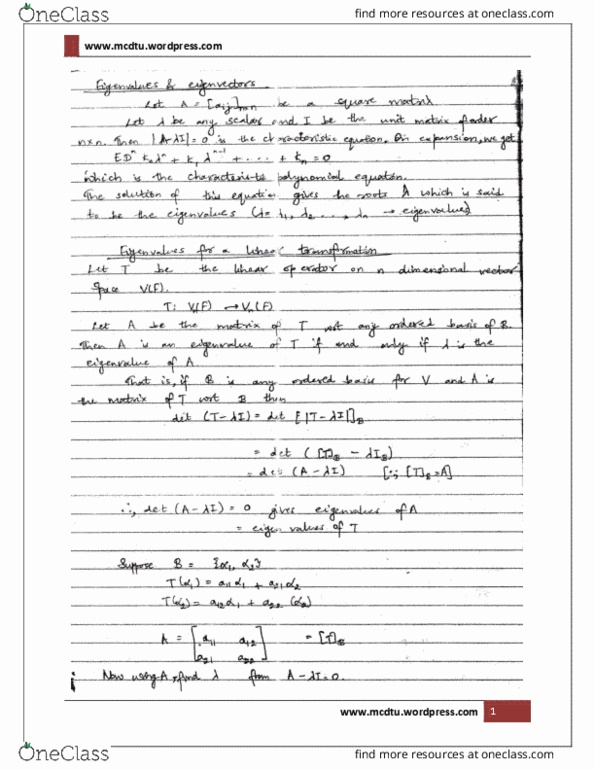 OneClass
find more resources at oneclass.com
www.mcdtu.wordpress.com
Eigenvalues & eigenvectors.
Let A = [aij]nxn be a square matrix
Let λ be any scalar and I be the unit matrix of order
n×n. Then |A-λI| = 0 is the characteristic equation. On expansion, we get
λⁿ + k₁ λⁿ⁻¹ + .... + kn = 0
which is the characteristic polynomial equation.
The solution of this equation gives the roots λ which is said
to be the eigenvalues (λ = λ₁, λ₂ ..., λn → eigenvalues)
Eigenvalues for a linear transformation
Let T be the linear operator on n dimensional vector
space V(F).
T: Vn(F) → Vn(F)
Let A be the matrix of T wrt any ordered basis of B.
Then λ is an eigenvalue of T if and only if λ is the
eigenvalue of A.
That is, if B is any ordered basis for V and A is
the matrix of T wrt B then
det (T-λI) = det [|T-λI|]B
= det ([T]B - λIB)
= det (A - λI) [∵ [T]B = A]
∴, det (A-λI) = 0 gives eigenvalues of A
= eigen values of T
Suppose B = {α₁, α₂}
T(α₁) = a₁₁α₁ + a₂₁α₂
T(α₂) = a₁₂α₁ + a₂₂ (α₂)
A = [a₁₁ a₁₂ = [T]B
a₂₁ a₂₂]
Now using A, find λ from A-λI=0.
www.mcdtu.wordpress.com 1
OneClass
find more resources at oneclass.com